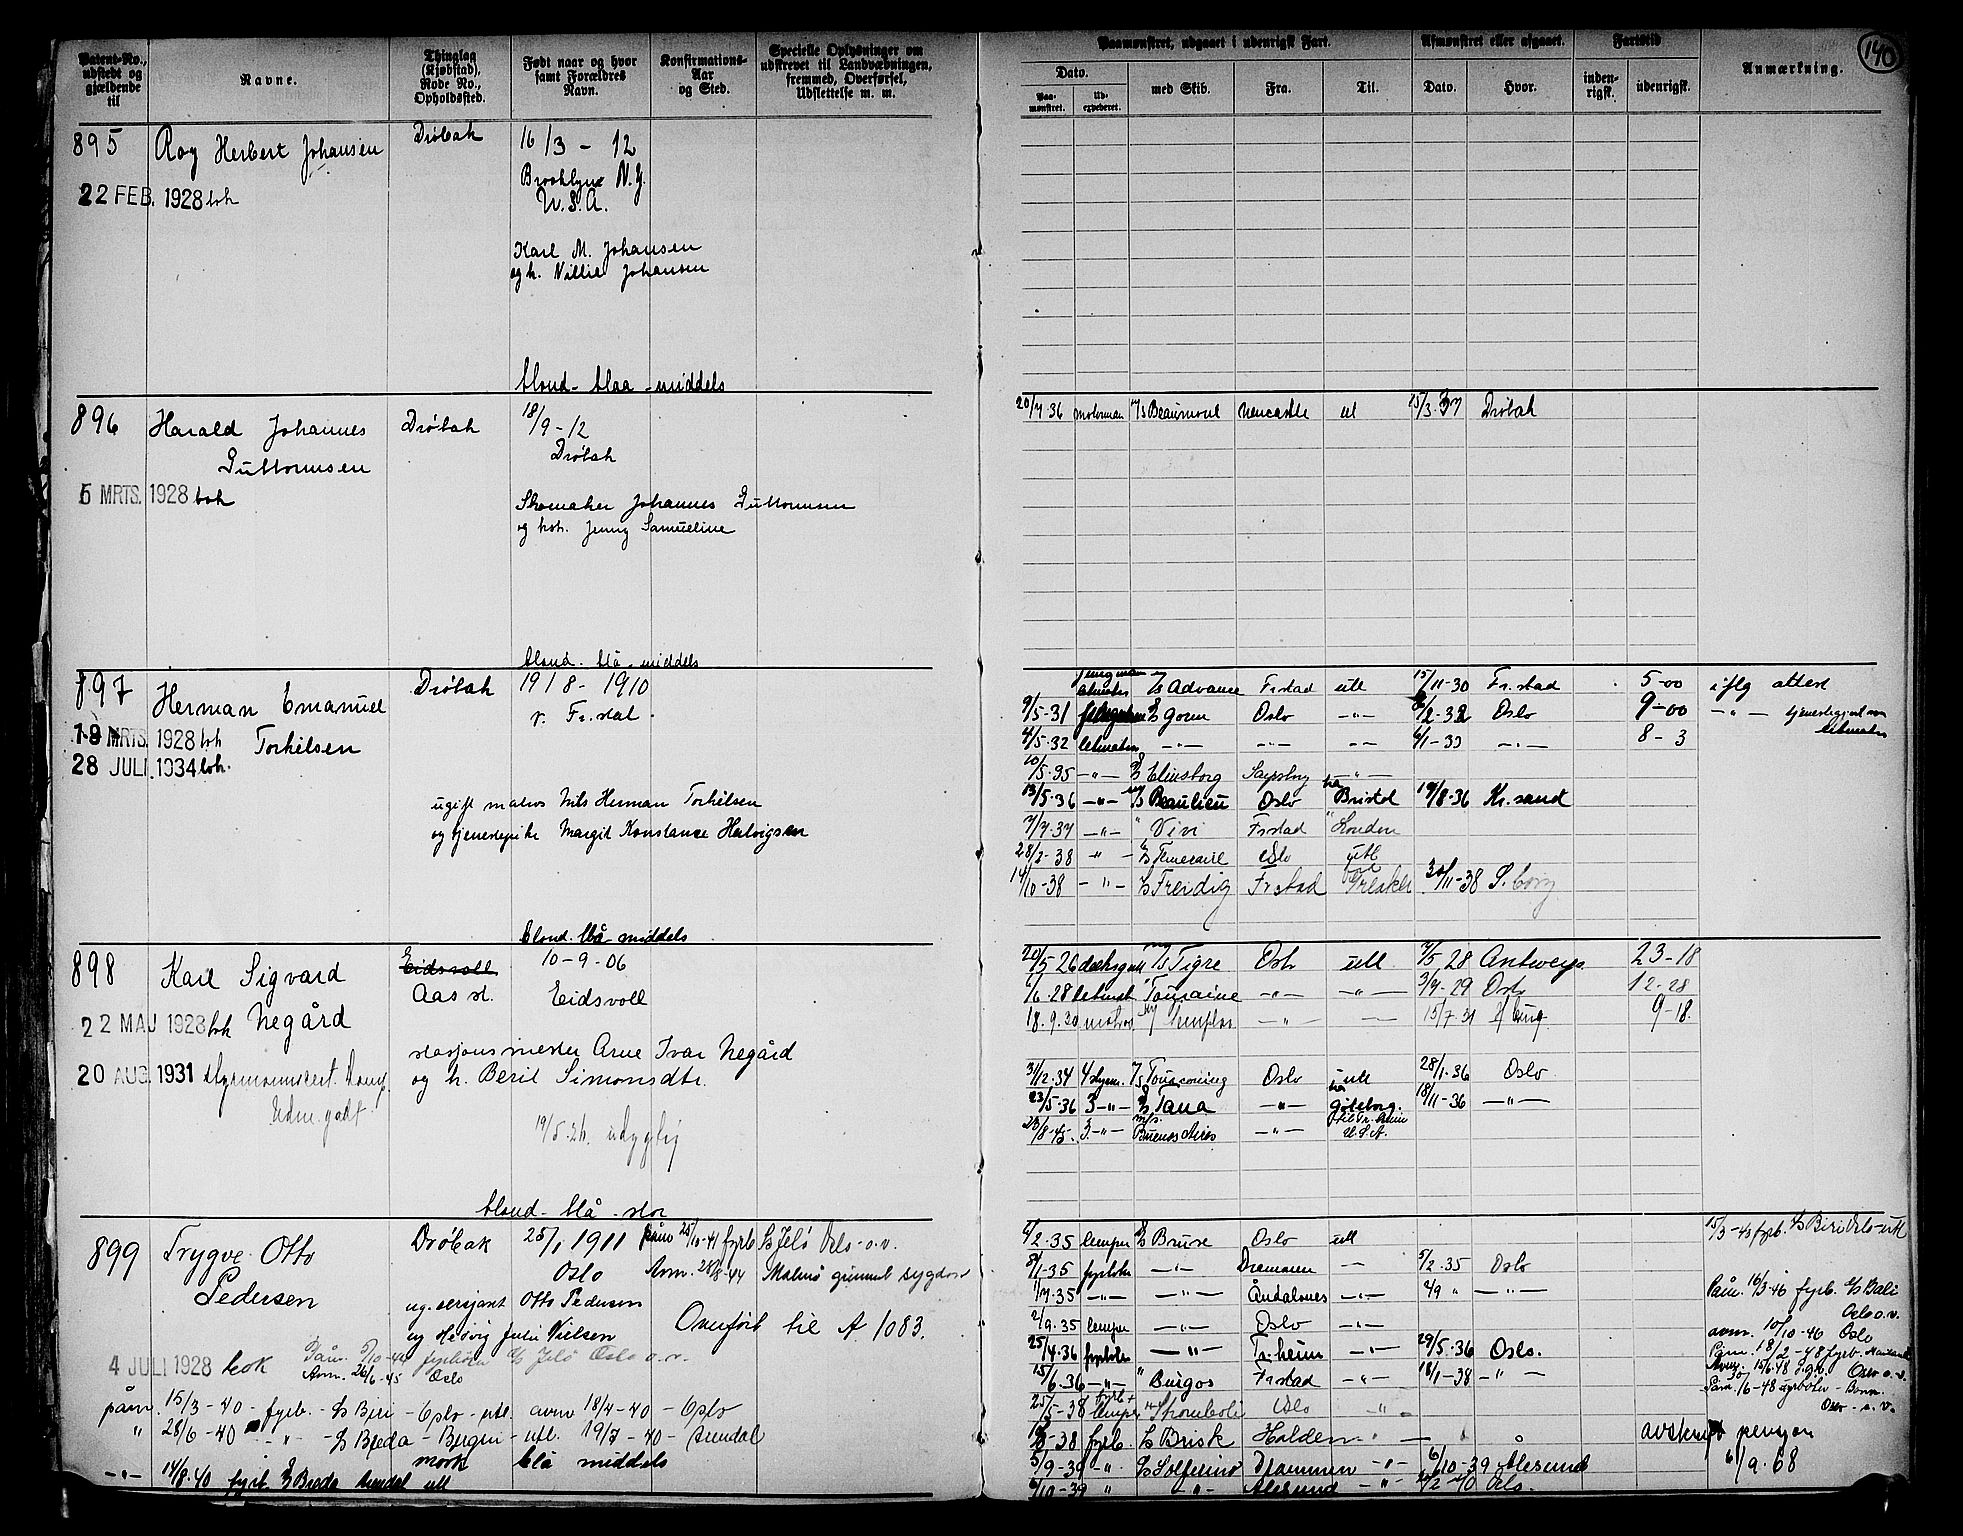 140
Patent-No., udstedt og gjældende til
Navne.
Thinglag (Kjøbstad), Rode No., Opholdssted.
Født naar og hvor samt Forældres Navn.
Konfirmations-Aar og Sted.
Specielle Oplysninger om udskrevet til Landværnet, fremmed, Overførsel, Udslettelse m. m.
Paamønstret, udgaaet i udenrigsk Fart.
Dato.
Paamønstret.
Udexpederet.
med Skib.
Fra.
Til.
Afmønstret eller afgaaet.
Dato.
Hvor.
Fartstid
indenrigsk.
udenrigsk.
Anmærkning.
895 Roy Herbert Johansen Drøbak 16/3 - 12
Brooklyn N.Y.
U.S.A.
22 FEB. 1928 bok
Karl M. Johansen
og h. Villie Johansen
blond - blaa - middels
896 Harald Johannes Guttormsen Drøbak 18/9 - 12
Drøbak
5 MRTS. 1928 bok
Skomaker Johannes Guttormsen
og hst. Jenny Samueline
blond - blå - middels
20/7-36 motorman M/S Beaumont Newcastle utl 15/3-37 Drøbak
897 Herman Emanuel Torkilsen Drøbak 19/8 - 1910
v. Fr.stad
19 MRTS. 1928 bok
28 JULI. 1934 bok.
ugift matros Nils Herman Torkilsen
og tjenestepike Margit Konstance Halvigsen
blond - blå - middels
jungman
letmatros S/S Advance Fr.stad utl 15/11-30 Fr.stad 5-00 iflg attest
9/5-31 S/S Gorm Oslo -"- 6/2-32 Oslo 9-00 -"-
4/5-32 letmatros -"- -"- -"- 6/1-33 -"- 8-3
10/5-35 -"- S/S Elinsborg Sarpsborg -"-
13/5-36 -"- M/S Beaulieu Oslo Bristol 19/8-36 Kr.sand
7/7-37 -"- " Vivi Fr.stad " London
28/2-38 -"- S/S Temeraire Oslo utl
14/10-38 -"- S/S Freidig Fr.stad Greaker 30/11-38 S.borg
898 Karl Sigvard Negård Eidsvoll
Aas st. 10-9-06
Eidsvoll
22 MAJ 1928 bok
20 AUG. 1931
stasjonsmester Arne Ivar Negård
og h. Beril Simonsdtr.
19/5.24. udygtig
blond - blå - stor
20/5-26 dæksgut M/S Tigre Oslo utl 7/5-28 Antwerp. 23-18
1/6-28 letmat " Touraine -"- -"- 3/7-29 Oslo 12-28
18.9.30 matros -"- 15/7-31 9-18.
3/12-34 4 styrm. M/S Oslo utl 28/1-36 Oslo
23/5-36 3-"- S/S Tana -"- Gøteborg. 18/11-36 -"-
23/8-45. 3.-"- M/S Buenos Aires -"- U.S.A.
899 Trygve Otto Pedersen Drøbak 25/1 1911
Oslo
påm 25/10-41 fyrb S/S Jelø Oslo - o.v.
Avm. 28/8-44 Malmø grunnet sygdom
ug. sersjant Otto Pedersen
og Hedvig Julie Nielsen
Overført til A 1083.
4 JULI 1928 bok
Påm. 5/10-44 fyrbøter S/S Jelø Oslo o.v.
Avm. 26/6-45 Oslo
påm. 15/3-40 - fyrb. - S/S Beri - Oslo - utl. avm 18/4-40 - Oslo
" 28/6-40 - " - S/S Breda - Bergen - utl. 19/7-40 - Arendal
mørk blå middels
-"- 14/8-40 fyrb. S/S Breda Arendal utl
1/2-35 lemper S/S Bruse Oslo utl
8/1-35 fyrbøter -"- Drammen -"- 5/2-35 Oslo
1/7-35 -"- -"- Åndalsnes -"- 4/9 " -"-
2/9-35 lemper -"- Oslo -"-
25/4-36 fyrbøter -"- Tr.heim -"- 29/5-36 Oslo.
15/6-36 -"- " Burgos Fr.stad -"- 18/1-38 -"-
25/5-38 fyrb + lemper Stromboli Oslo -"-
-38 fyrb. S/S Brisk Halden -"-
5/9-39 -"- S/S Solferino Drammen -"- 6/10-39 Ålesund
9/10-39 " -"- Ålesund -"- -40 Oslo.
15/3-43 fyrb. S/S Beri Oslo-utl
Påm. 16/3-46 fyrb. S/S Bali
Oslo o.v.
avm. 10/10-46 Oslo
Påm. 18/2-48 fyrb.
Avm. 15/6-48 Oslo o.v.
Oslo - o.v.
avskrevet pensjon
6/9.68